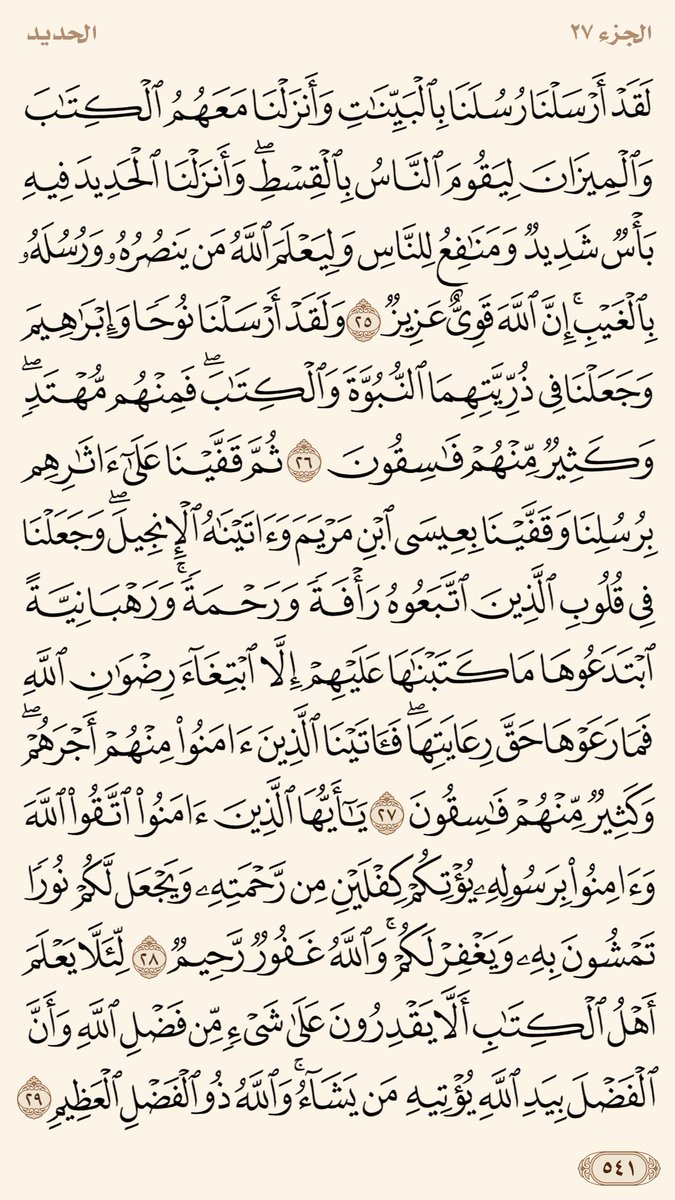 الجزء ٢٧
الحديد
لَقَدۡ أَرۡسَلۡنَا رُسُلَنَا بِٱلۡبَيِّنَٰتِ وَأَنزَلۡنَا مَعَهُمُ ٱلۡكِتَٰبَ
وَٱلۡمِيزَانَ لِيَقُومَ ٱلنَّاسُ بِٱلۡقِسۡطِۖ وَأَنزَلۡنَا ٱلۡحَدِيدَ فِيهِ
بَأۡسٞ شَدِيدٞ وَمَنَٰفِعُ لِلنَّاسِ وَلِيَعۡلَمَ ٱللَّهُ مَن يَنصُرُهُۥ وَرُسُلَهُۥ
بِٱلۡغَيۡبِۚ إِنَّ ٱللَّهَ قَوِيٌّ عَزِيزٞ ٢٥ وَلَقَدۡ أَرۡسَلۡنَا نُوحٗا وَإِبۡرَٰهِيمَ
وَجَعَلۡنَا فِي ذُرِّيَّتِهِمَا ٱلنُّبُوَّةَ وَٱلۡكِتَٰبَۖ فَمِنۡهُم مُّهۡتَدٖۖ
وَكَثِيرٞ مِّنۡهُمۡ فَٰسِقُونَ ٢٦ ثُمَّ قَفَّيۡنَا عَلَىٰٓ ءَاثَٰرِهِم
بِرُسُلِنَا وَقَفَّيۡنَا بِعِيسَى ٱبۡنِ مَرۡيَمَ وَءَاتَيۡنَٰهُ ٱلۡإِنجِيلَۖ وَجَعَلۡنَا
فِي قُلُوبِ ٱلَّذِينَ ٱتَّبَعُوهُ رَأۡفَةٗ وَرَحۡمَةٗۚ وَرَهۡبَانِيَّةً
ٱبۡتَدَعُوهَا مَا كَتَبۡنَٰهَا عَلَيۡهِمۡ إِلَّا ٱبۡتِغَآءَ رِضۡوَٰنِ ٱللَّهِ
فَمَا رَعَوۡهَا حَقَّ رِعَايَتِهَاۖ فَـَٔاتَيۡنَا ٱلَّذِينَ ءَامَنُواْ مِنۡهُمۡ أَجۡرَهُمۡۖ
وَكَثِيرٞ مِّنۡهُمۡ فَٰسِقُونَ ٢٧ يَٰٓأَيُّهَا ٱلَّذِينَ ءَامَنُواْ ٱتَّقُواْ ٱللَّهَ
وَءَامِنُواْ بِرَسُولِهِۦ يُؤۡتِكُمۡ كِفۡلَيۡنِ مِن رَّحۡمَتِهِۦ وَيَجۡعَل لَّكُمۡ نُورٗا
تَمۡشُونَ بِهِۦ وَيَغۡفِرۡ لَكُمۡۚ وَٱللَّهُ غَفُورٞ رَّحِيمٞ ٢٨ لِّئَلَّا يَعۡلَمَ
أَهۡلُ ٱلۡكِتَٰبِ أَلَّا يَقۡدِرُونَ عَلَىٰ شَيۡءٖ مِّن فَضۡلِ ٱللَّهِ وَأَنَّ
ٱلۡفَضۡلَ بِيَدِ ٱللَّهِ يُؤۡتِيهِ مَن يَشَآءُۚ وَٱللَّهُ ذُو ٱلۡفَضۡلِ ٱلۡعَظِيمِ ٢٩
٥٤١